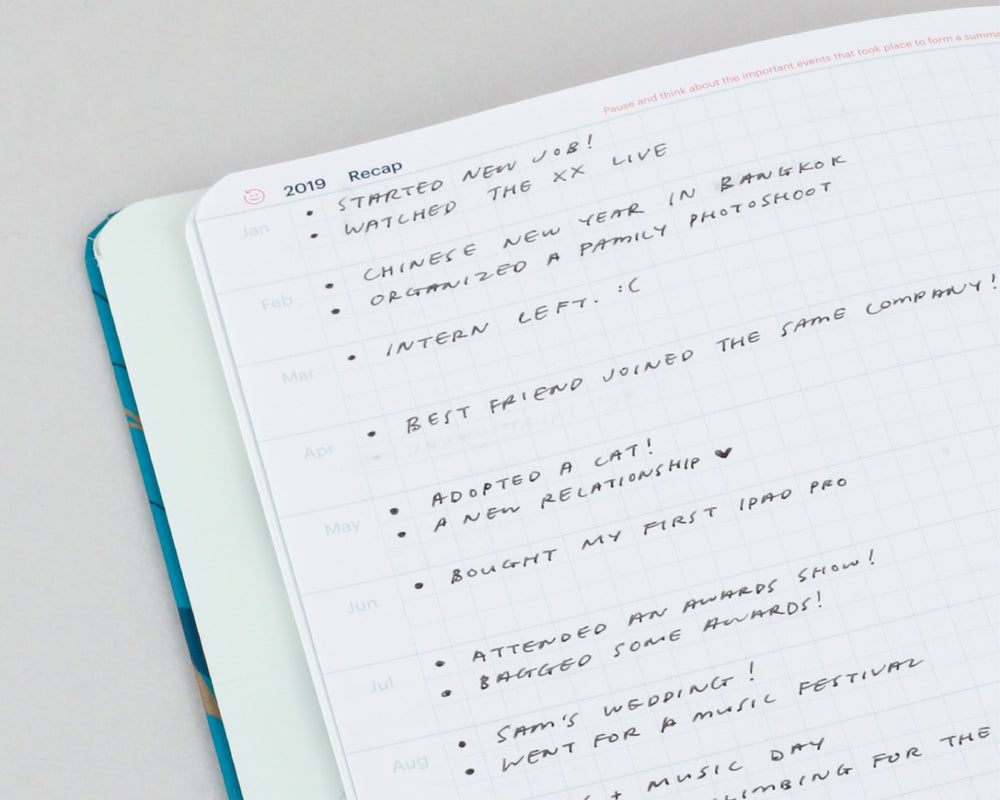 Pause and think about the important events that took place to form a summa
2019 Recap
Jan
• STARTED NEW JOB!
• WATCHED THE XX LIVE
Feb
• CHINESE NEW YEAR IN BANGKOK
• ORGANIZED A FAMILY PHOTOSHOOT
Mar
• INTERN LEFT. :C
Apr
• BEST FRIEND JOINED THE SAME COMPANY!
May
• ADOPTED A CAT!
• A NEW RELATIONSHIP ♥
Jun
• BOUGHT MY FIRST IPAD PRO
Jul
• ATTENDED AN AWARDS SHOW!
• BAGGED SOME AWARDS!
Aug
• SAM'S WEDDING!
• WENT FOR A MUSIC FESTIVAL
+ MUSIC DAY
LIMBING FOR THE